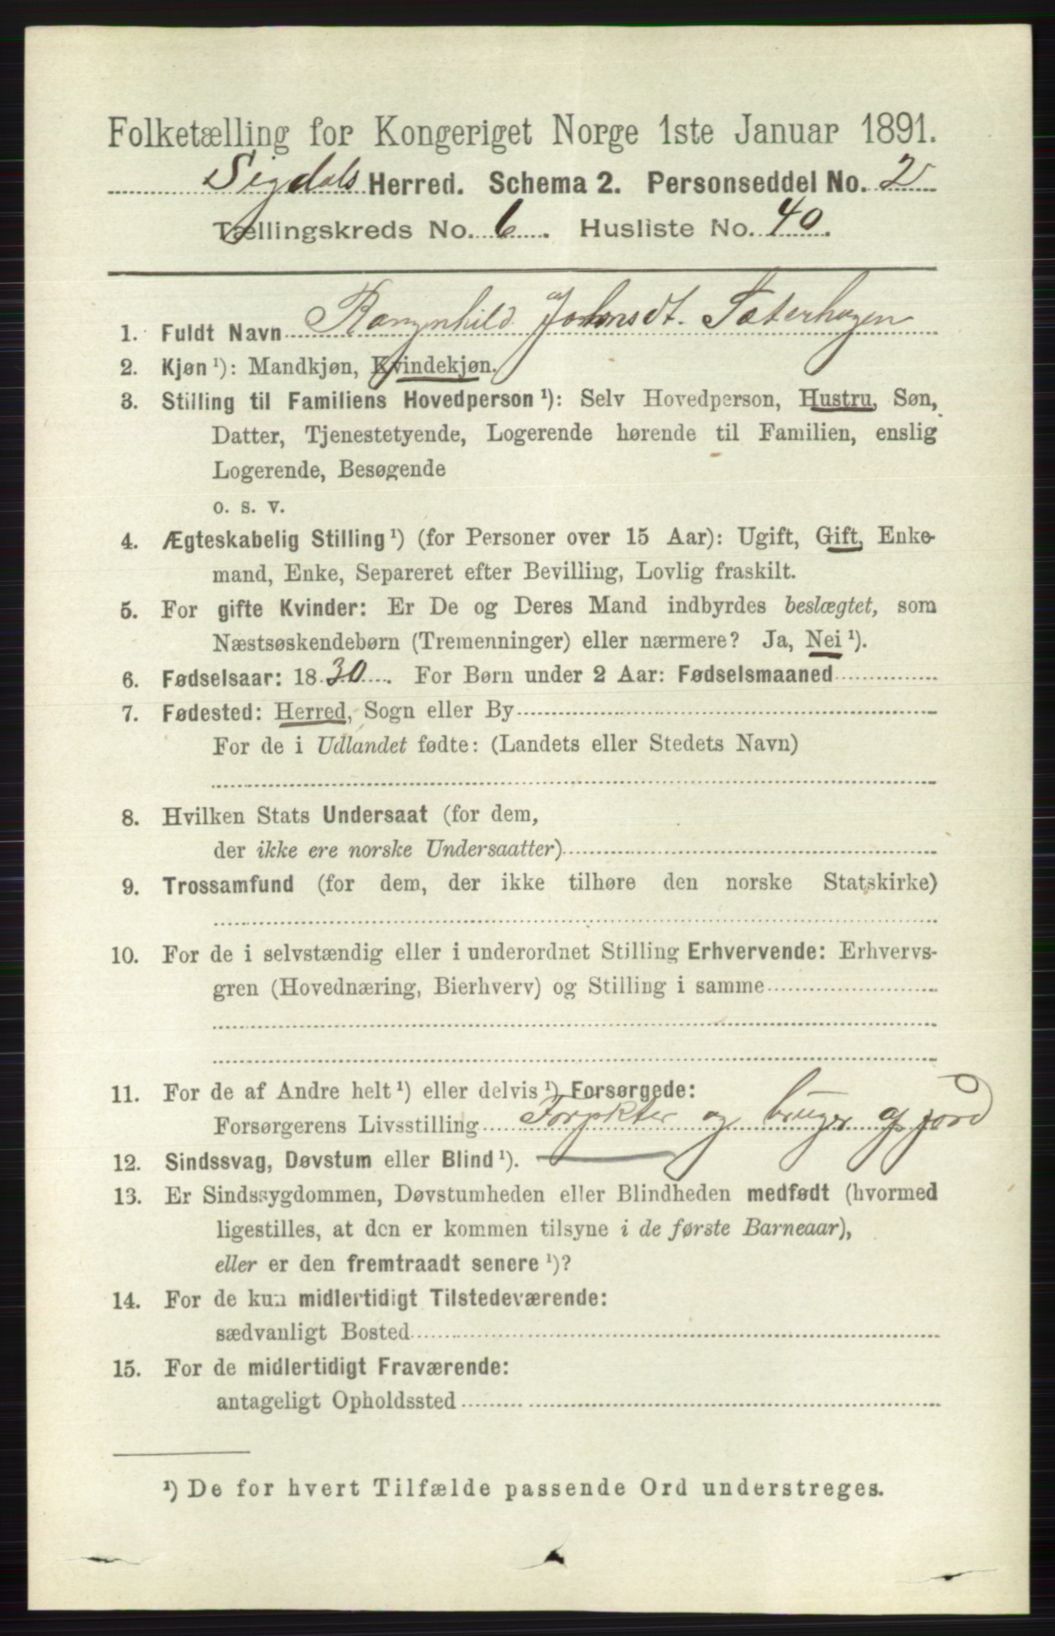 Folketælling for Kongeriget Norge 1ste Januar 1891.
Sigdals Herred. Schema 2. Personseddel No. 2
Tællingskreds No. 6. Husliste No. 40.
1. Fuldt Navn Rangnhild Johnsdt. Sæterhagen
2. Kjøn ¹): Mandkjøn, Kvindekjøn.
3. Stilling til Familiens Hovedperson ¹): Selv Hovedperson, Hustru, Søn,
Datter, Tjenestetyende, Logerende hørende til Familien, enslig
Logerende, Besøgende
o. s. v.
4. Ægteskabelig Stilling ¹) (for Personer over 15 Aar): Ugift, Gift, Enke-
mand, Enke, Separeret efter Bevilling, Lovlig fraskilt.
5. For gifte Kvinder: Er De og Deres Mand indbyrdes beslægtet, som
Næstsøskendebørn (Tremenninger) eller nærmere? Ja, Nei ¹).
6. Fødselsaar: 1830. For Børn under 2 Aar: Fødselsmaaned
7. Fødested: Herred, Sogn eller By
For de i Udlandet fødte: (Landets eller Stedets Navn)
8. Hvilken Stats Undersaat (for dem,
der ikke ere norske Undersaatter)
9. Trossamfund (for dem, der ikke tilhøre den norske Statskirke)
10. For de i selvstændig eller i underordnet Stilling Erhvervende: Erhvervs-
gren (Hovednæring, Bierhverv) og Stilling i samme
11. For de af Andre helt ¹) eller delvis ¹) Forsørgede:
Forsørgerens Livsstilling Forpkter og bruger af jord
12. Sindssvag, Døvstum eller Blind ¹).
13. Er Sindssygdommen, Døvstumheden eller Blindheden medfødt (hvormed
ligestilles, at den er kommen tilsyne i de første Barneaar),
eller er den fremtraadt senere ¹)?
14. For de kun midlertidigt Tilstedeværende:
sædvanligt Bosted
15. For de midlertidigt Fraværende:
antageligt Opholdssted
¹) De for hvert Tilfælde passende Ord understreges.